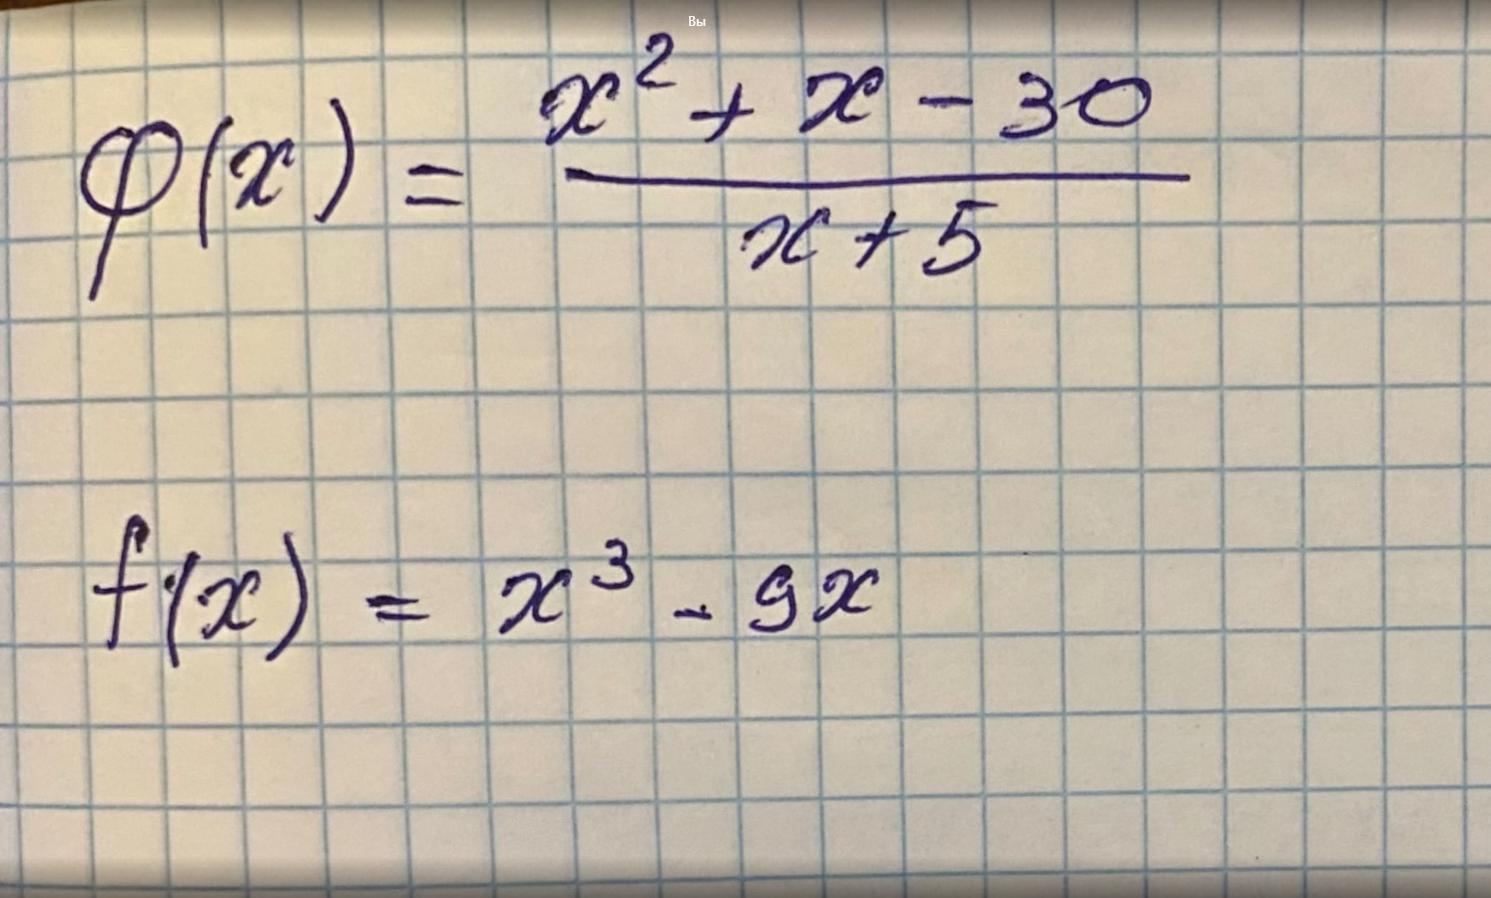 Вы
φ(x) = (x² + x - 30) / (x + 5)
f(x) = x³ - 9x